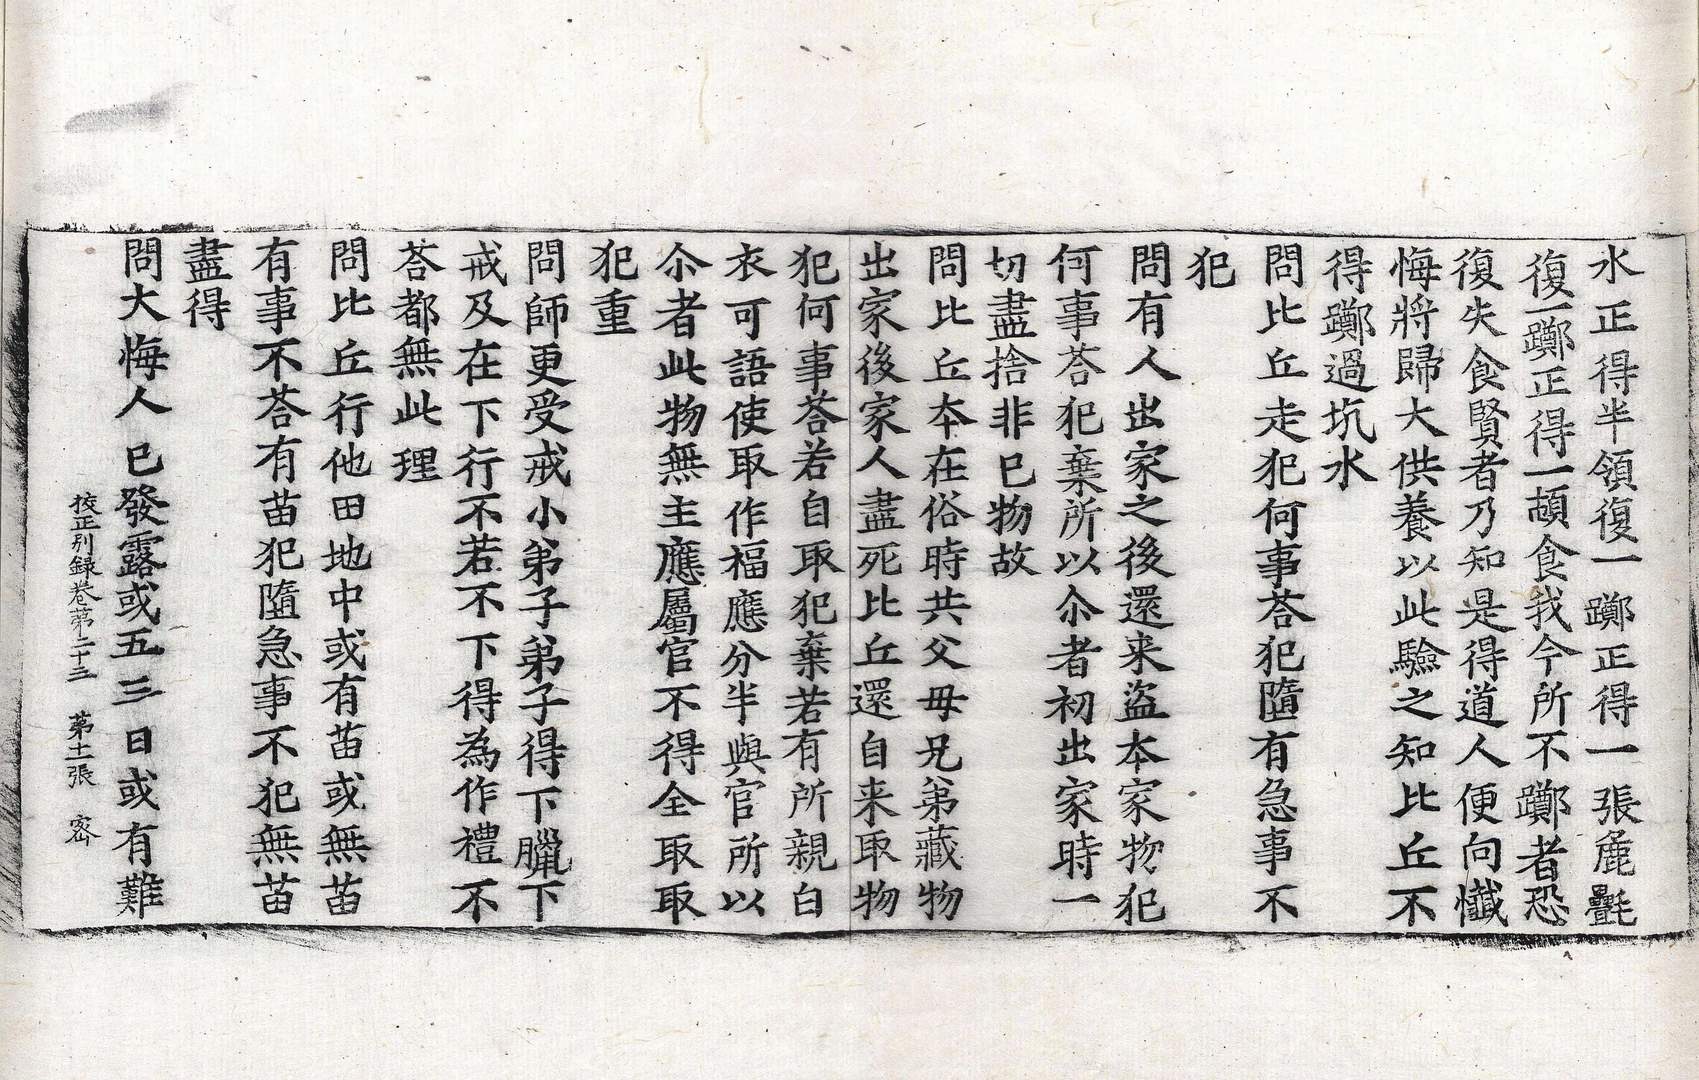 水正得半領復一躑正得一張麁㲲
復一躑正得一頓食我今所不躑者恐
復失食賢者乃知是得道人便向懺
悔將歸大供養以此驗之知比丘不
得躑過坑水
問比丘走犯何事荅犯隨有急事不
犯
問有人出家之後還来盜本家物犯
何事荅犯棄所以尒者初出家時一
切盡捨非已物故
問比丘本在俗時共父母兄弟藏物
出家後家人盡死比丘還自来取物
犯何事荅若自取犯棄若有所親白
衣可語使取作福應分半與官所以
尒者此物無主應屬官不得全取取
犯重
問師更受戒小弟子弟子得下臘下
戒及在下行不若不下得為作禮不
荅都無此理
問比丘行他田地中或有苗或無苗
有事不荅有苗犯隨急事不犯無苗
盡得
問大悔人已發露或五三日或有難
挍正別録卷第二十三　第十一張　宻